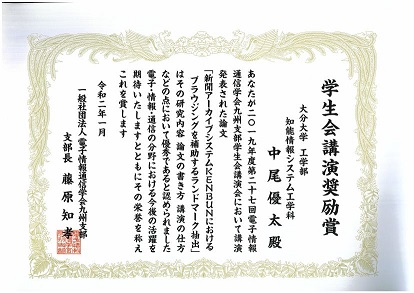 学生会講演奨励賞
大分大学 工学部
知能情報システム工学科
中尾優太 殿
あなたが二〇一九年度第二十七回電子情報
通信学会九州支部学生会講演会において講演
発表された論文
「新聞アーカイブシステムKENBUNにおける
ブラウジングを補助するランドマーク抽出」
はその研究内容 論文の書き方 講演の仕方
などの点において優秀であると認められました
電子・情報・通信の分野における今後の活躍を
期待いたしますとともにその栄誉を称え
これを賞します
令和二年一月
一般社団法人電子情報通信学会九州支部
支部長 藤原知孝